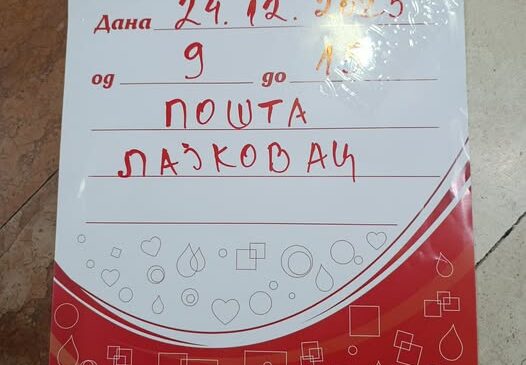 Дана 24.12.2025
од 9 до 15
ПОШТА
ЛАЗКОВАЦ